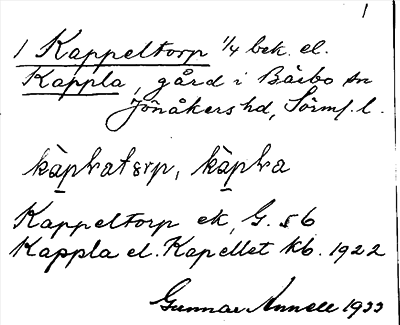 1
1 Kappeltorp 1/4 bek. el.
Kappla, gård i Bärbo sn
Jönåkers hd, Sörml. l.
kap̱ḷatorp, kap̱ḷa
Kappeltorp ek, G. 56
Kappla el. Kapellet kb. 1922
Gunnar Annell 1933